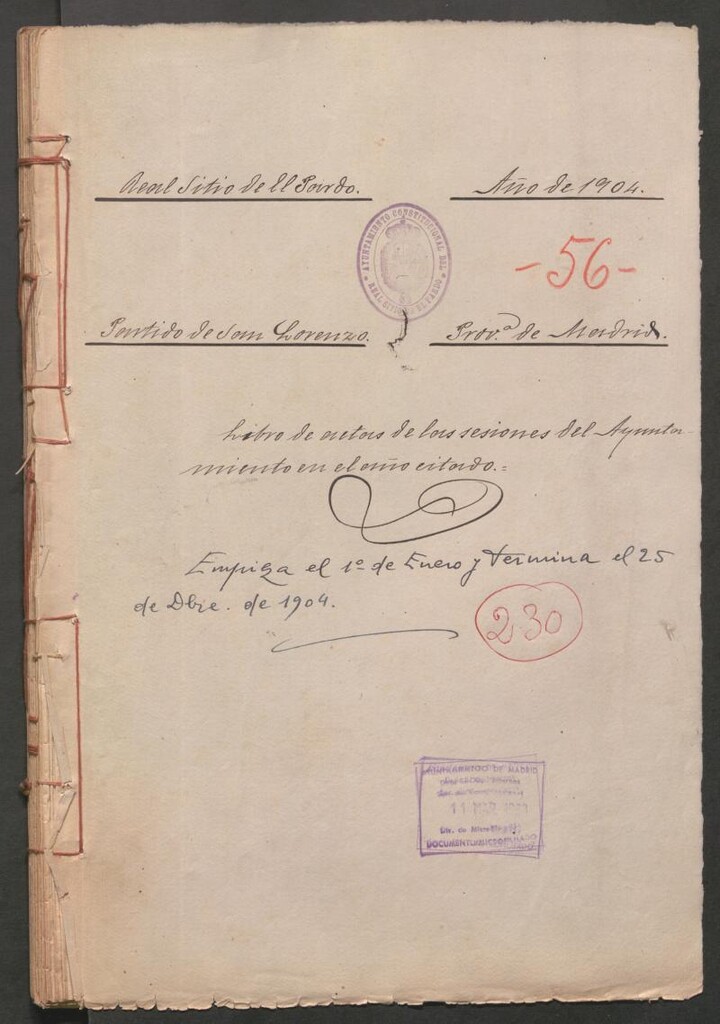 Real Sitio de El Pardo. Año de 1904.
AYUNTAMIENTO CONSTITUCIONAL DEL
REAL SITIO DE EL PARDO
-56-
Partido de San Lorenzo. Prov.ª de Madrid.
Libro de actas de las sesiones del Ayunta-
miento en el año citado.=
Empieza el 1º de Enero y termina el 25
de Dbre. de 1904.
230
AYUNTAMIENTO DE MADRID
11
DOCUMENTO MICROFILMADO